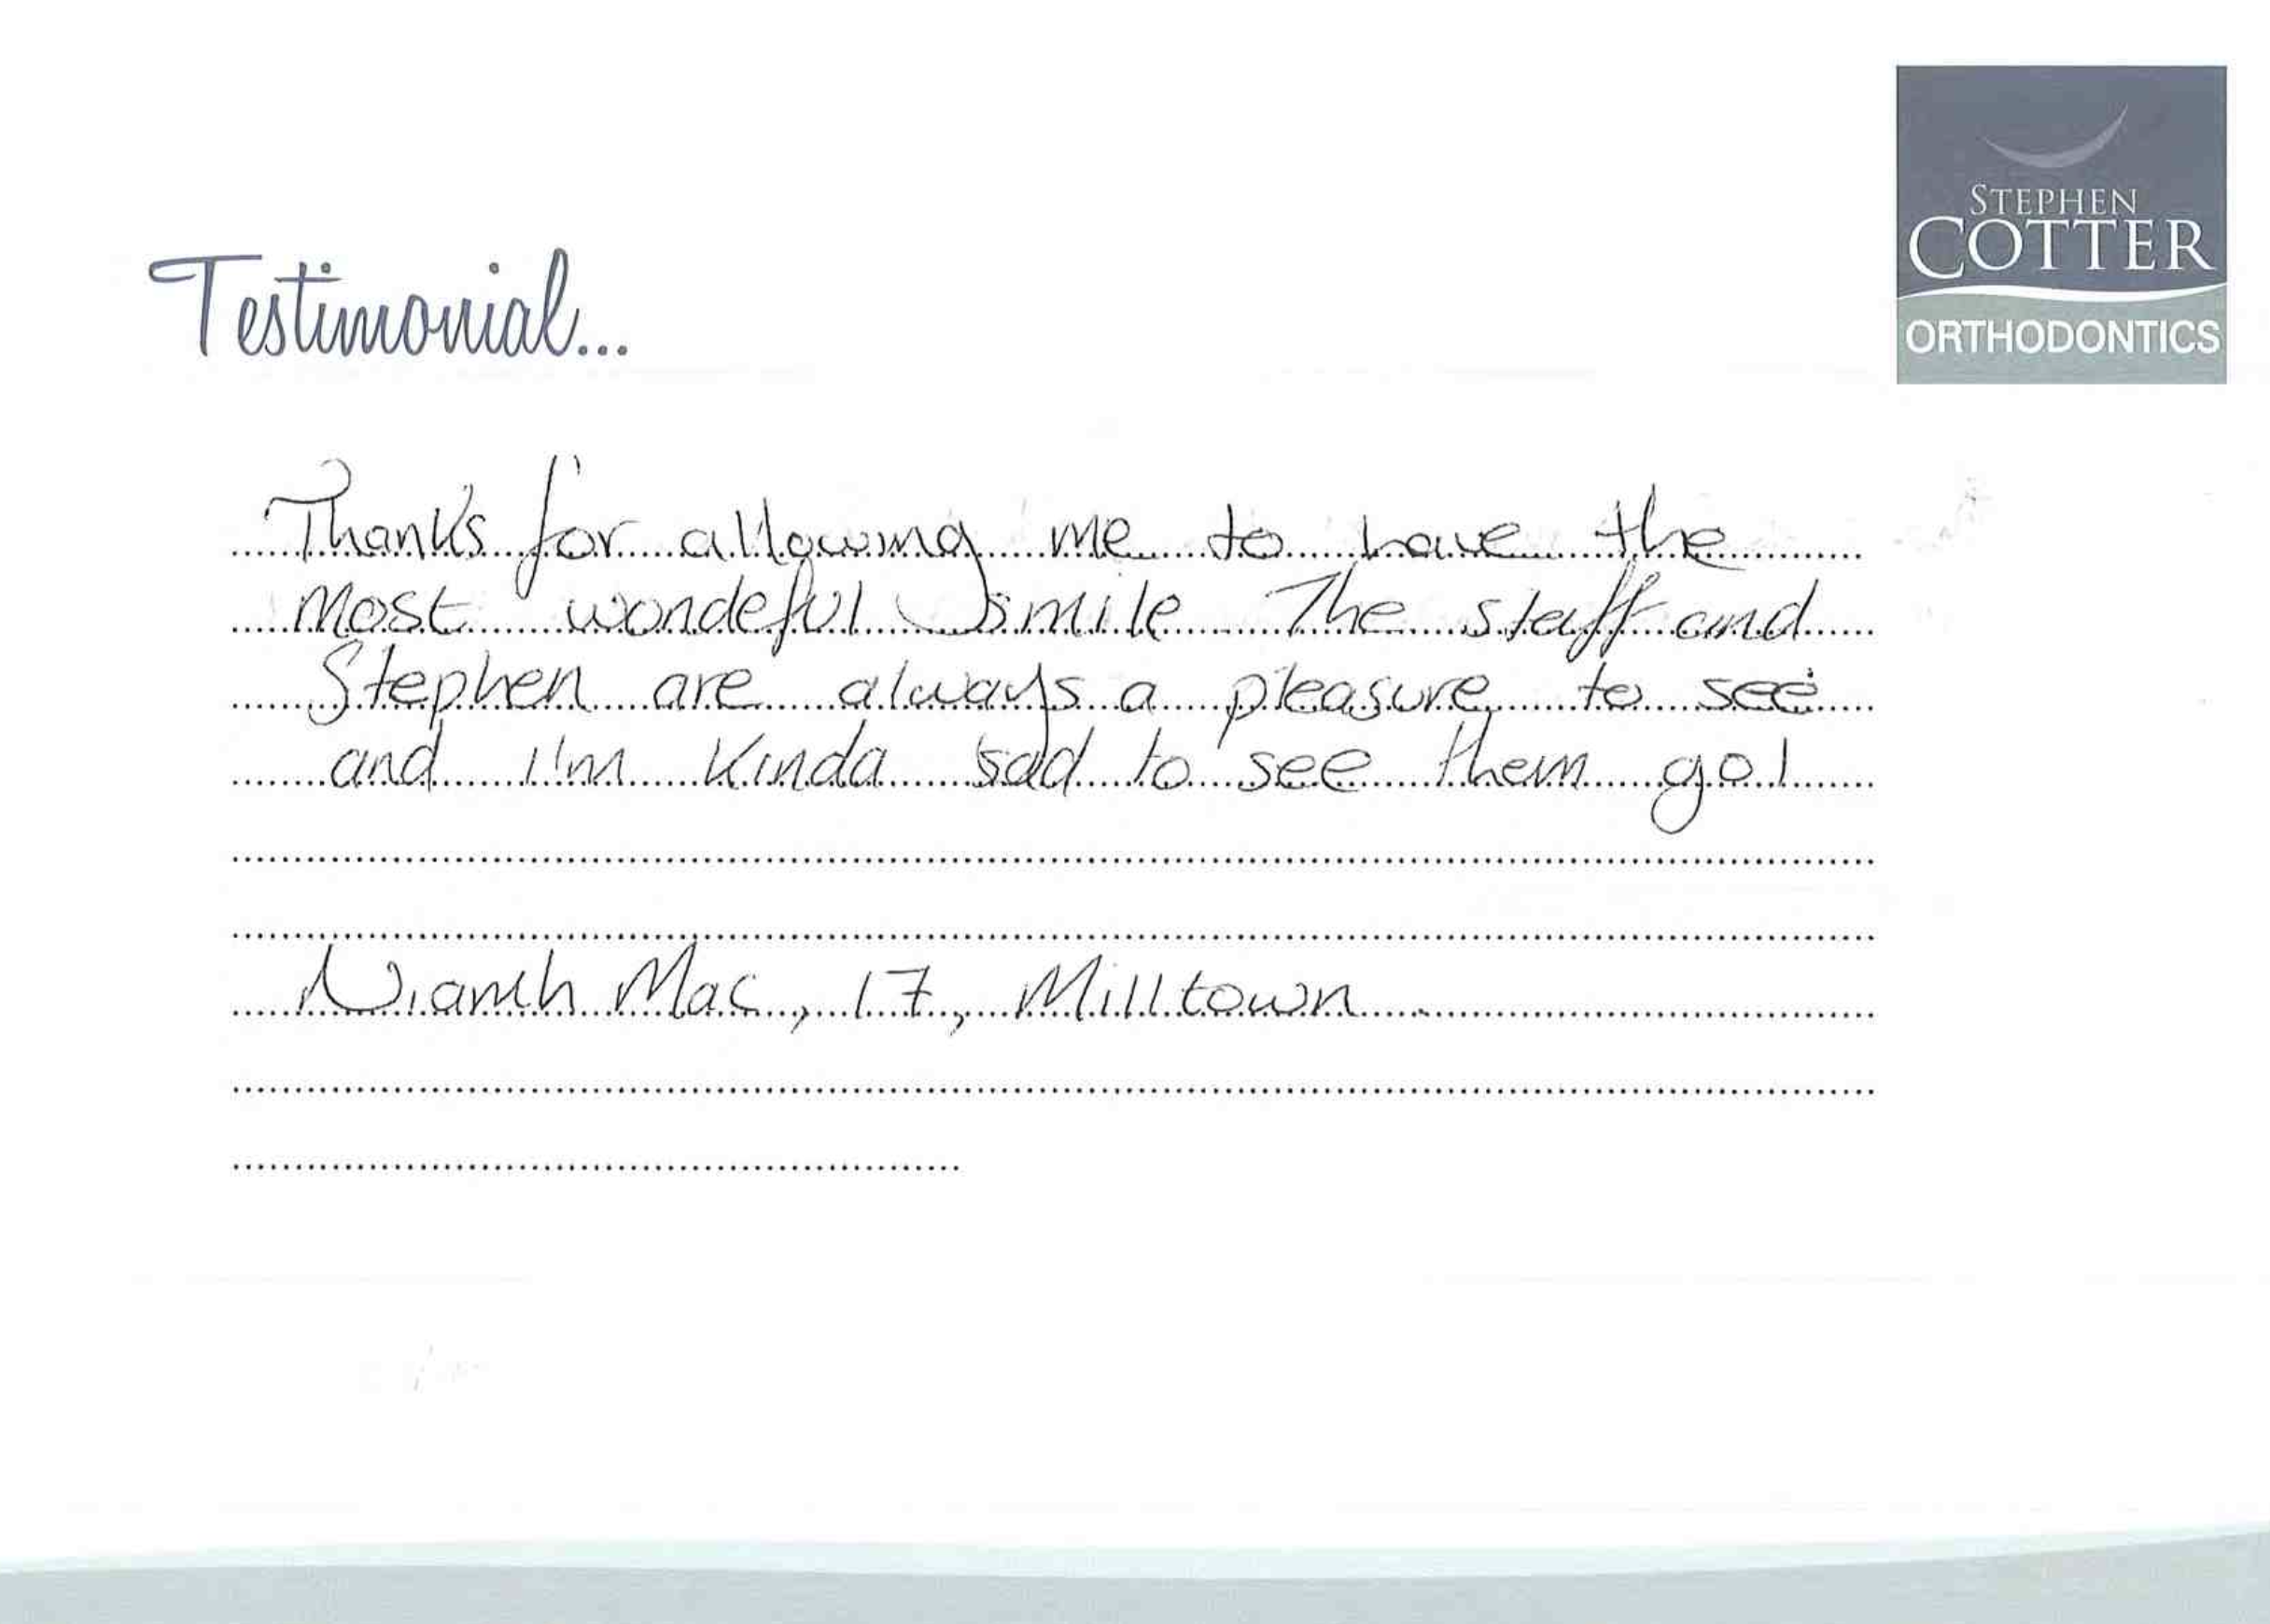 STEPHEN
COTTER
ORTHODONTICS
Testimonial...
Thanks for allowing me to have the
most wondeful smile The staff and
Stephen are always a pleasure to see
and I'm kinda sad to see them go!
Niamh Mac, 17, Milltown